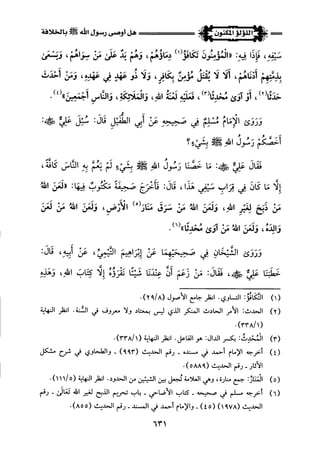 اللؤلؤ المكنون
هل أوصى رسول الله ﷺ بالخلافة
سَيْفِهِ، فَإِذَا فِيهِ: «الْمُؤْمِنُونَ تَكَافَؤُ(١) دِمَاؤُهُمْ، وَهُمْ يَدٌ عَلَىٰ مَنْ سِوَاهُمْ، وَيَسْعَىٰ
بِذِمَّتِهِمْ أَدْنَاهُمْ، أَلَا لَا يُقْتَلُ مُؤْمِنٌ بِكَافِرٍ، وَلَا ذُو عَهْدٍ فِي عَهْدِهِ، وَمَنْ أَحْدَثَ
حَدَثًا(٢)، أَوْ آوَىٰ مُحْدِثًا(٣)، فَعَلَيْهِ لَعْنَةُ اللهِ، وَالْمَلَائِكَةِ، وَالنَّاسِ أَجْمَعِينَ»(٤).
وَرَوَىٰ الْإِمَامُ مُسْلِمٌ فِي صَحِيحِهِ عَنْ أَبِي الطُّفَيْلِ قَالَ: سُئِلَ عَلِيٌّ ﷺ:
أَخَصَّكُمْ رَسُولُ اللهِ ﷺ بِشَيْءٍ؟
فَقَالَ عَلِيٌّ: مَا خَصَّنَا رَسُولُ اللهِ ﷺ بِشَيْءٍ لَمْ يَعُمَّ بِهِ النَّاسَ كَافَّةً،
إِلَّا مَا كَانَ فِي قِرَابِ سَيْفِي هَذَا، قَالَ: فَأَخْرَجَ صَحِيفَةً مَكْتُوبٌ فِيهَا: «لَعَنَ اللهُ
مَنْ ذَبَحَ لِغَيْرِ اللهِ، وَلَعَنَ اللهُ مَنْ سَرَقَ مَنَارَ(٥) الْأَرْضِ، وَلَعَنَ اللهُ مَنْ لَعَنَ
وَالِدَهُ، وَلَعَنَ اللهُ مَنْ آوَىٰ مُحْدِثًا»(٦).
وَرَوَىٰ الشَّيْخَانِ فِي صَحِيحَيْهِمَا عَنْ إِبْرَاهِيمَ التَّيْمِيِّ، عَنْ أَبِيهِ، قَالَ:
خَطَبَنَا عَلِيٌّ، فَقَالَ: مَنْ زَعَمَ أَنَّ عِنْدَنَا شَيْئًا نَقْرَؤُهُ إِلَّا كِتَابَ اللهِ، وَهَذِهِ
(١) التَّكَافُؤُ: التساوي. انظر جامع الأصول (٢٩/٨).
(٢) الحدث: الأمر الحادث المنكر الذي ليس بمعتاد ولا معروف في السُّنة. انظر النهاية
(٣٣٨/١).
(٣) الْمُحْدِثُ: بكسر الدال: هو الفاعل. انظر النهاية (٣٣٨/١).
(٤) أخرجه الإمام أحمد في مسنده - رقم الحديث (٩٩٣) - والطحاوي في شرح مشكل
الآثار - رقم الحديث (٥٨٨٩).
(٥) الْمَنَارُ: جمع منارة، وهي العلامة تُجعل بين الشيئين من الحدود. انظر النهاية (١١١/٥).
(٦) أخرجه مسلم في صحيحه - كتاب الأضاحي - باب تحريم الذبح لغير الله تَعَالَىٰ - رقم
الحديث (١٩٧٨) (٤٥) - والإمام أحمد في المسند - رقم الحديث (٨٥٥).
٦٣١